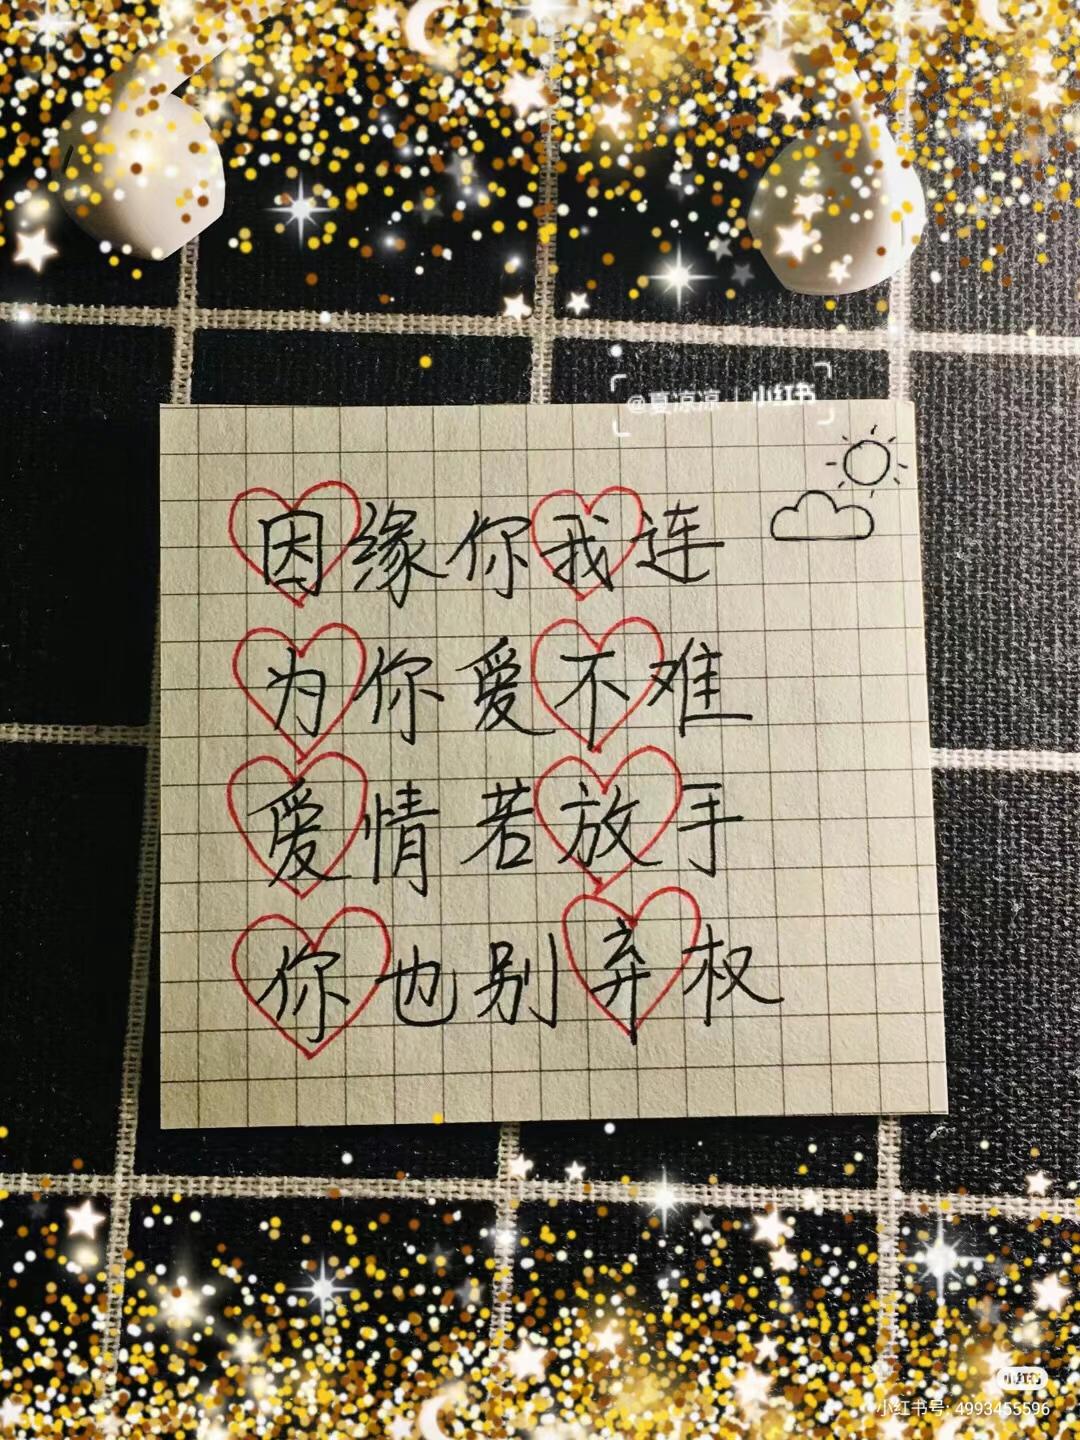 @夏凉凉 | 小红书
因缘你我连
为你爱不难
爱情若放手
你也别弃权
小红书
小红书号: 4993455596